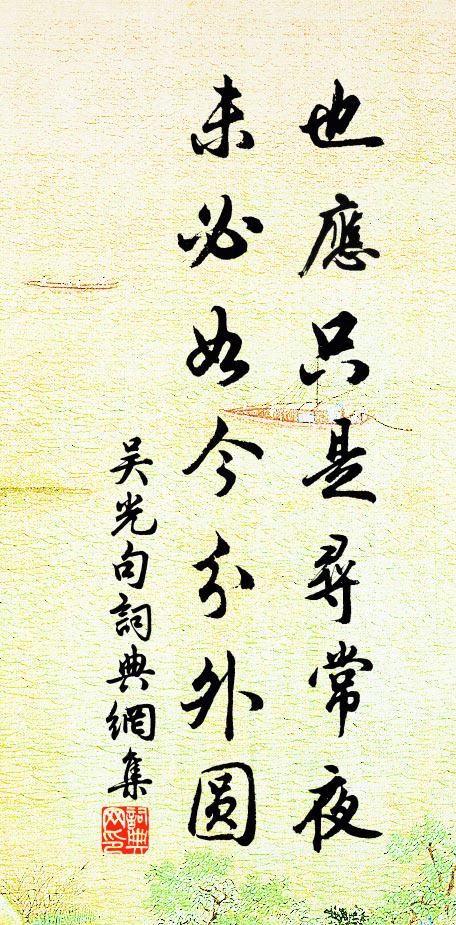 也應只是尋常夜
未必如今分外圓
吴光句詞典網集
詞典网印